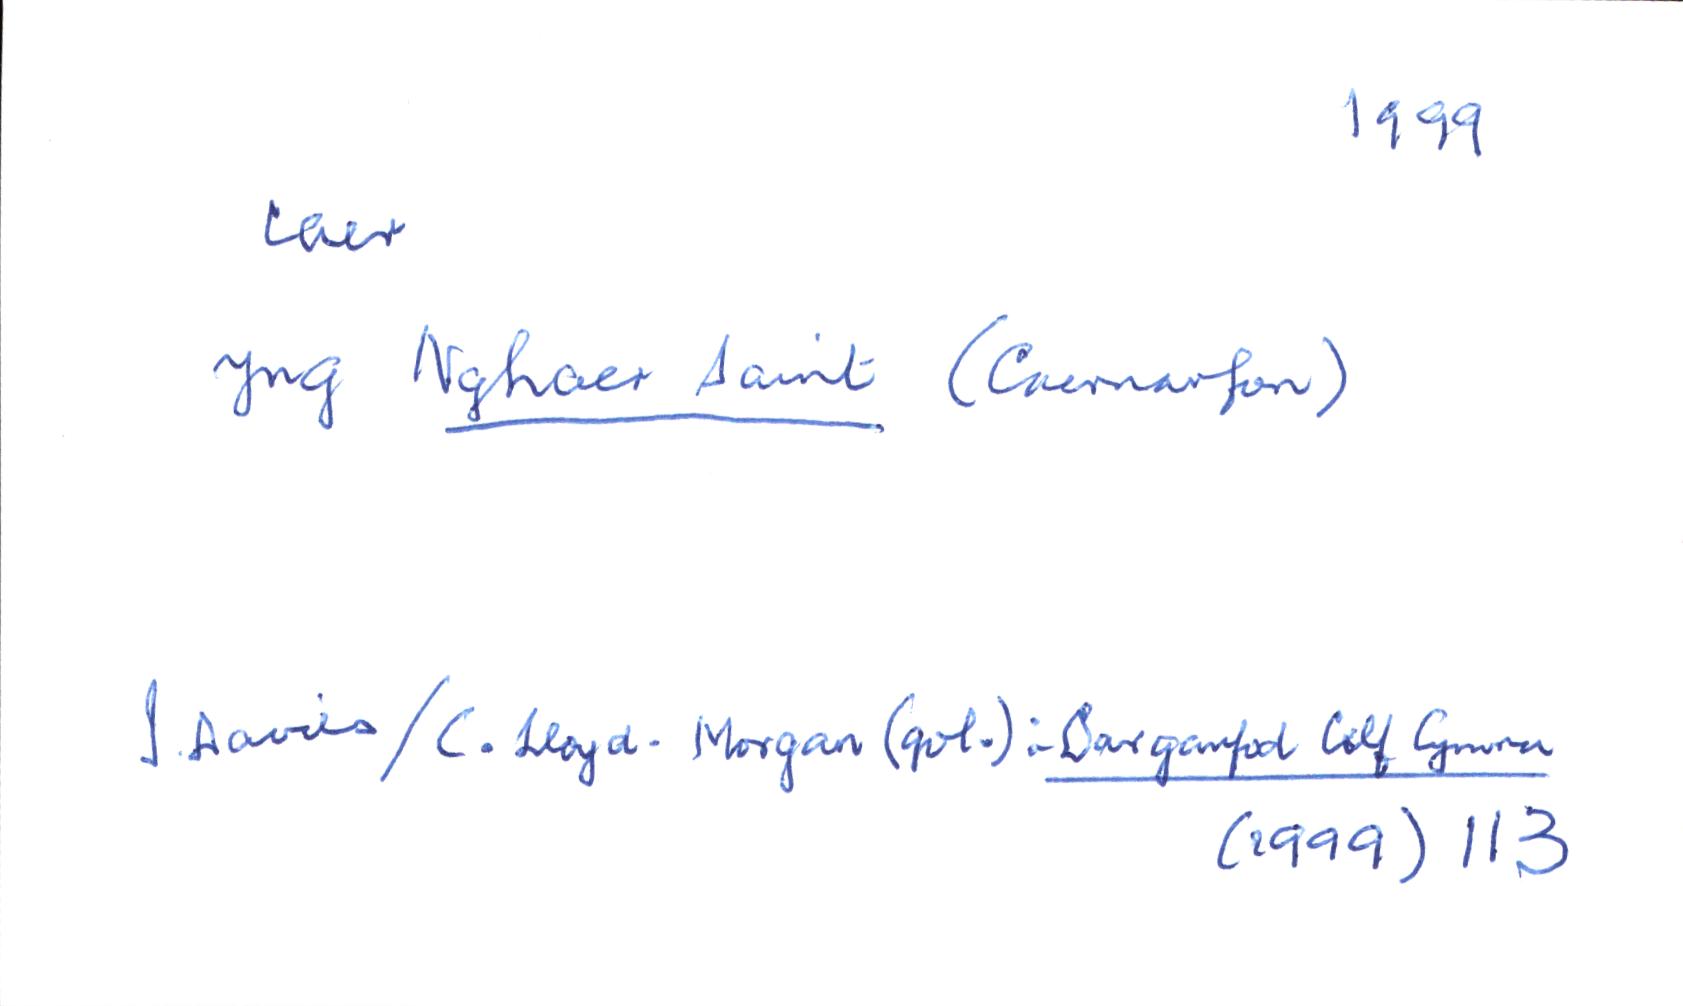 1999
caer
yng Nghaer Saint (Caernarfon)
I. Davies / C. Lloyd-Morgan (gol.) :- Darganfod Celf Cymru
(1999) 113